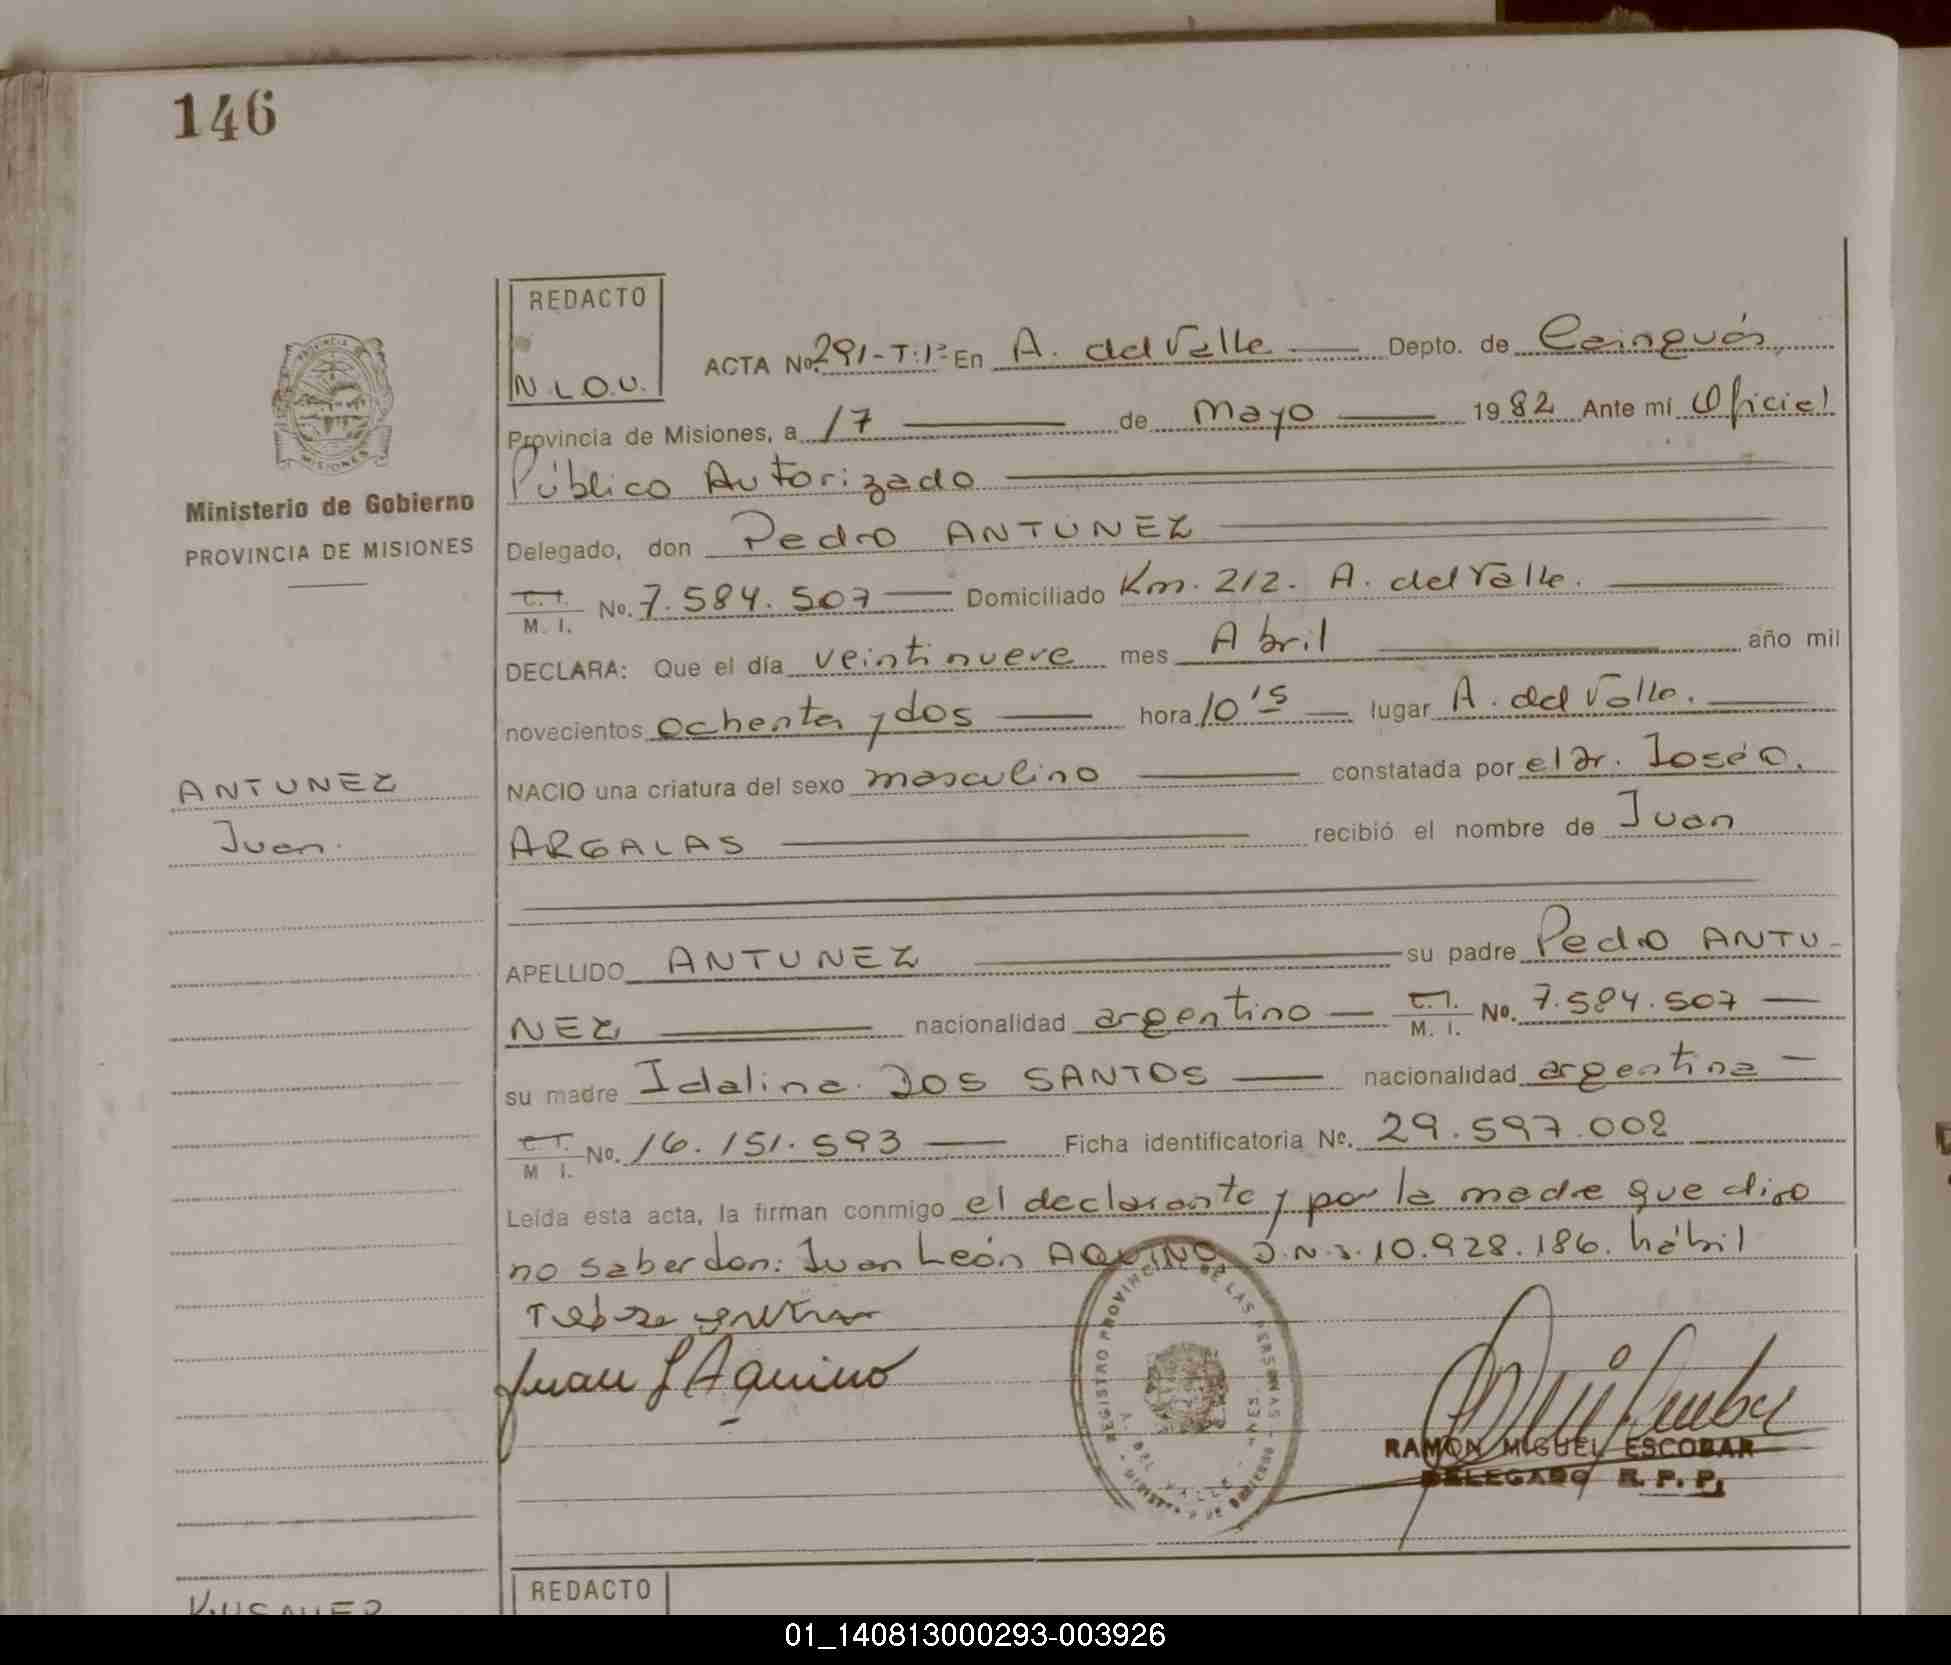 146
REDACTO
N.L.O.U.
PROVINCIA
MISIONES
Ministerio de Gobierno
PROVINCIA DE MISIONES
ACTA No. 291-T:1º En A. del Valle Depto. de Cainguás,
Provincia de Misiones, a 17 de Mayo 1982 Ante mí Oficial
Público Autorizado
Delegado, don Pedro ANTUNEZ
C. I. / M. I. No. 7.584.507 Domiciliado Km. 212. A. del Valle.
DECLARA: Que el día veintinueve mes Abril año mil
novecientos ochenta y dos hora 10'5 lugar A. del Valle.
ANTUNEZ
Juan.
NACIO una criatura del sexo masculino constatada por el Dr. José O.
ARGALAS recibió el nombre de Juan
APELLIDO ANTUNEZ su padre Pedro ANTU-
NEZ nacionalidad argentino C. I. / M. I. No. 7.584.507
su madre Idalina DOS SANTOS nacionalidad argentina
C. I. / M. I. No. 16.151.593 Ficha identificatoria No. 29.597.002
Leída esta acta, la firman conmigo el declarante y por la madre que dijo
no saber don: Juan León AQUINO D.N.I. 10.928.186. hábil
Juan L Aquino
REGISTRO PROVINCIAL DE LAS PERSONAS
A. DEL VALLE - MNES
RAMON MIGUEL ESCOBAR
DELEGADO R. P. P.
REDACTO
01_140813000293-003926